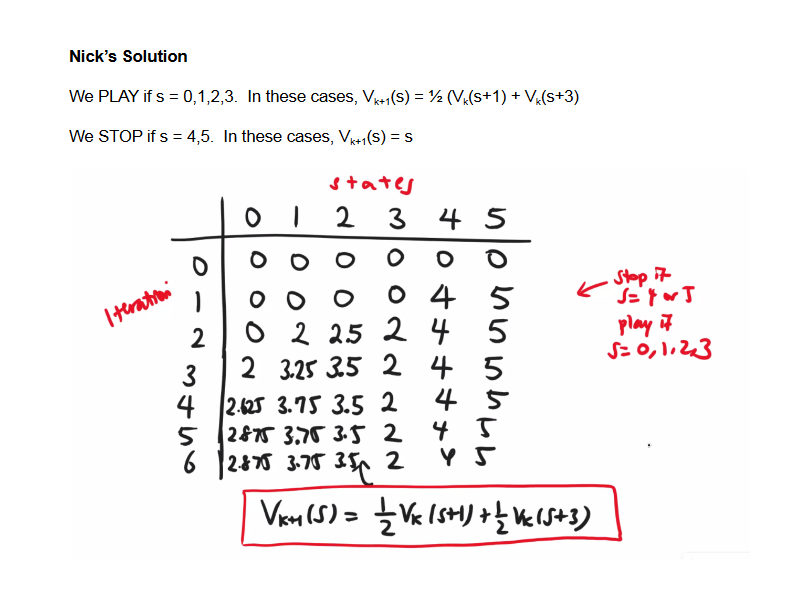 Nick's Solution
We PLAY if s = 0,1,2,3. In these cases, Vₖ₊₁(s) = ½ (Vₖ(s+1) + Vₖ(s+3)
We STOP if s = 4,5. In these cases, Vₖ₊₁(s) = s
states
0 1 2 3 4 5
0 0 0 0 0 0 0
1 0 0 0 0 4 5
2 0 2 2.5 2 4 5
3 2 3.25 3.5 2 4 5
4 2.625 3.75 3.5 2 4 5
5 2.875 3.75 3.5 2 4 5
6 2.875 3.75 3.5 2 4 5
Iteration
stop if
s= 4 or 5
play if
s= 0,1,2,3
Vₖ₊₁(s) = 1/2 Vₖ(s+1) + 1/2 Vₖ(s+3)